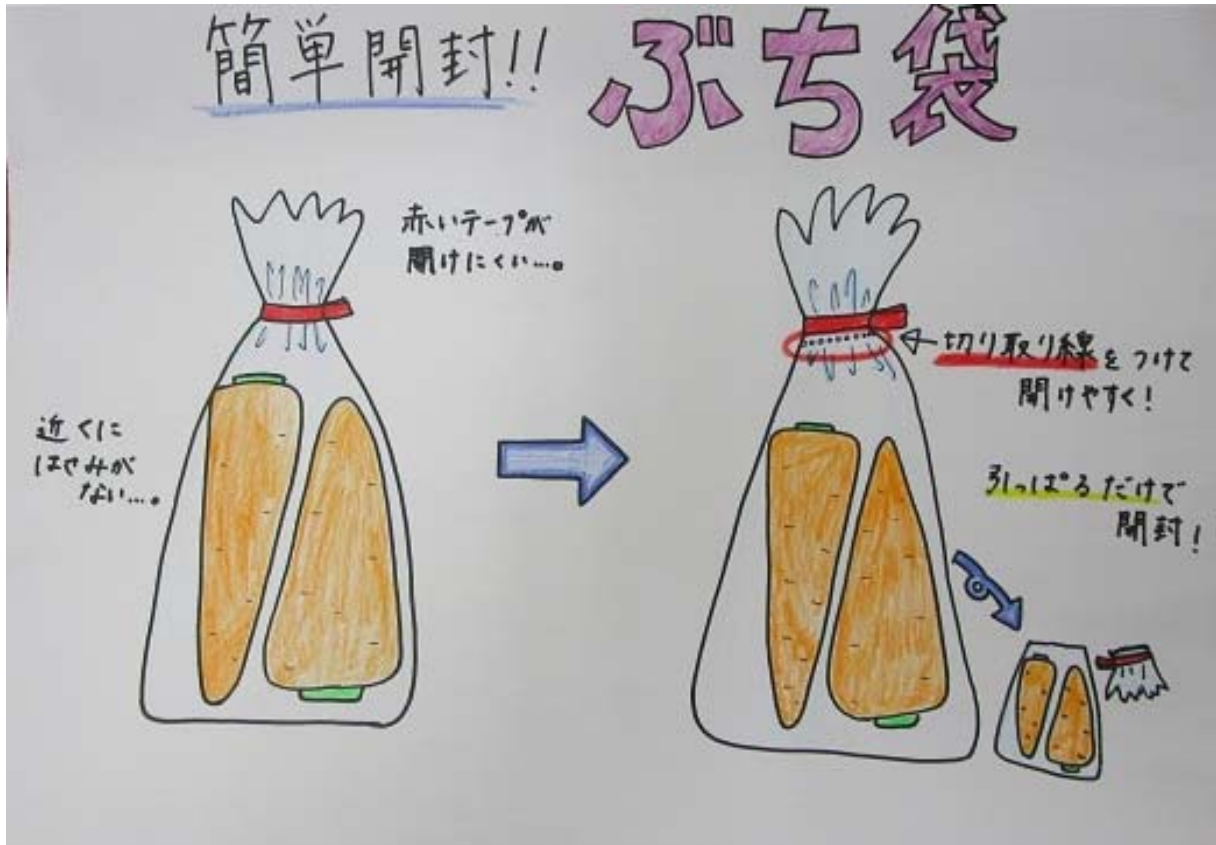 簡単開封!!
ぶち袋
赤いテープが
開けにくい…。
近くに
はさみが
ない…。
切り取り線をつけて
開けやすく!
引っぱるだけで
開封!